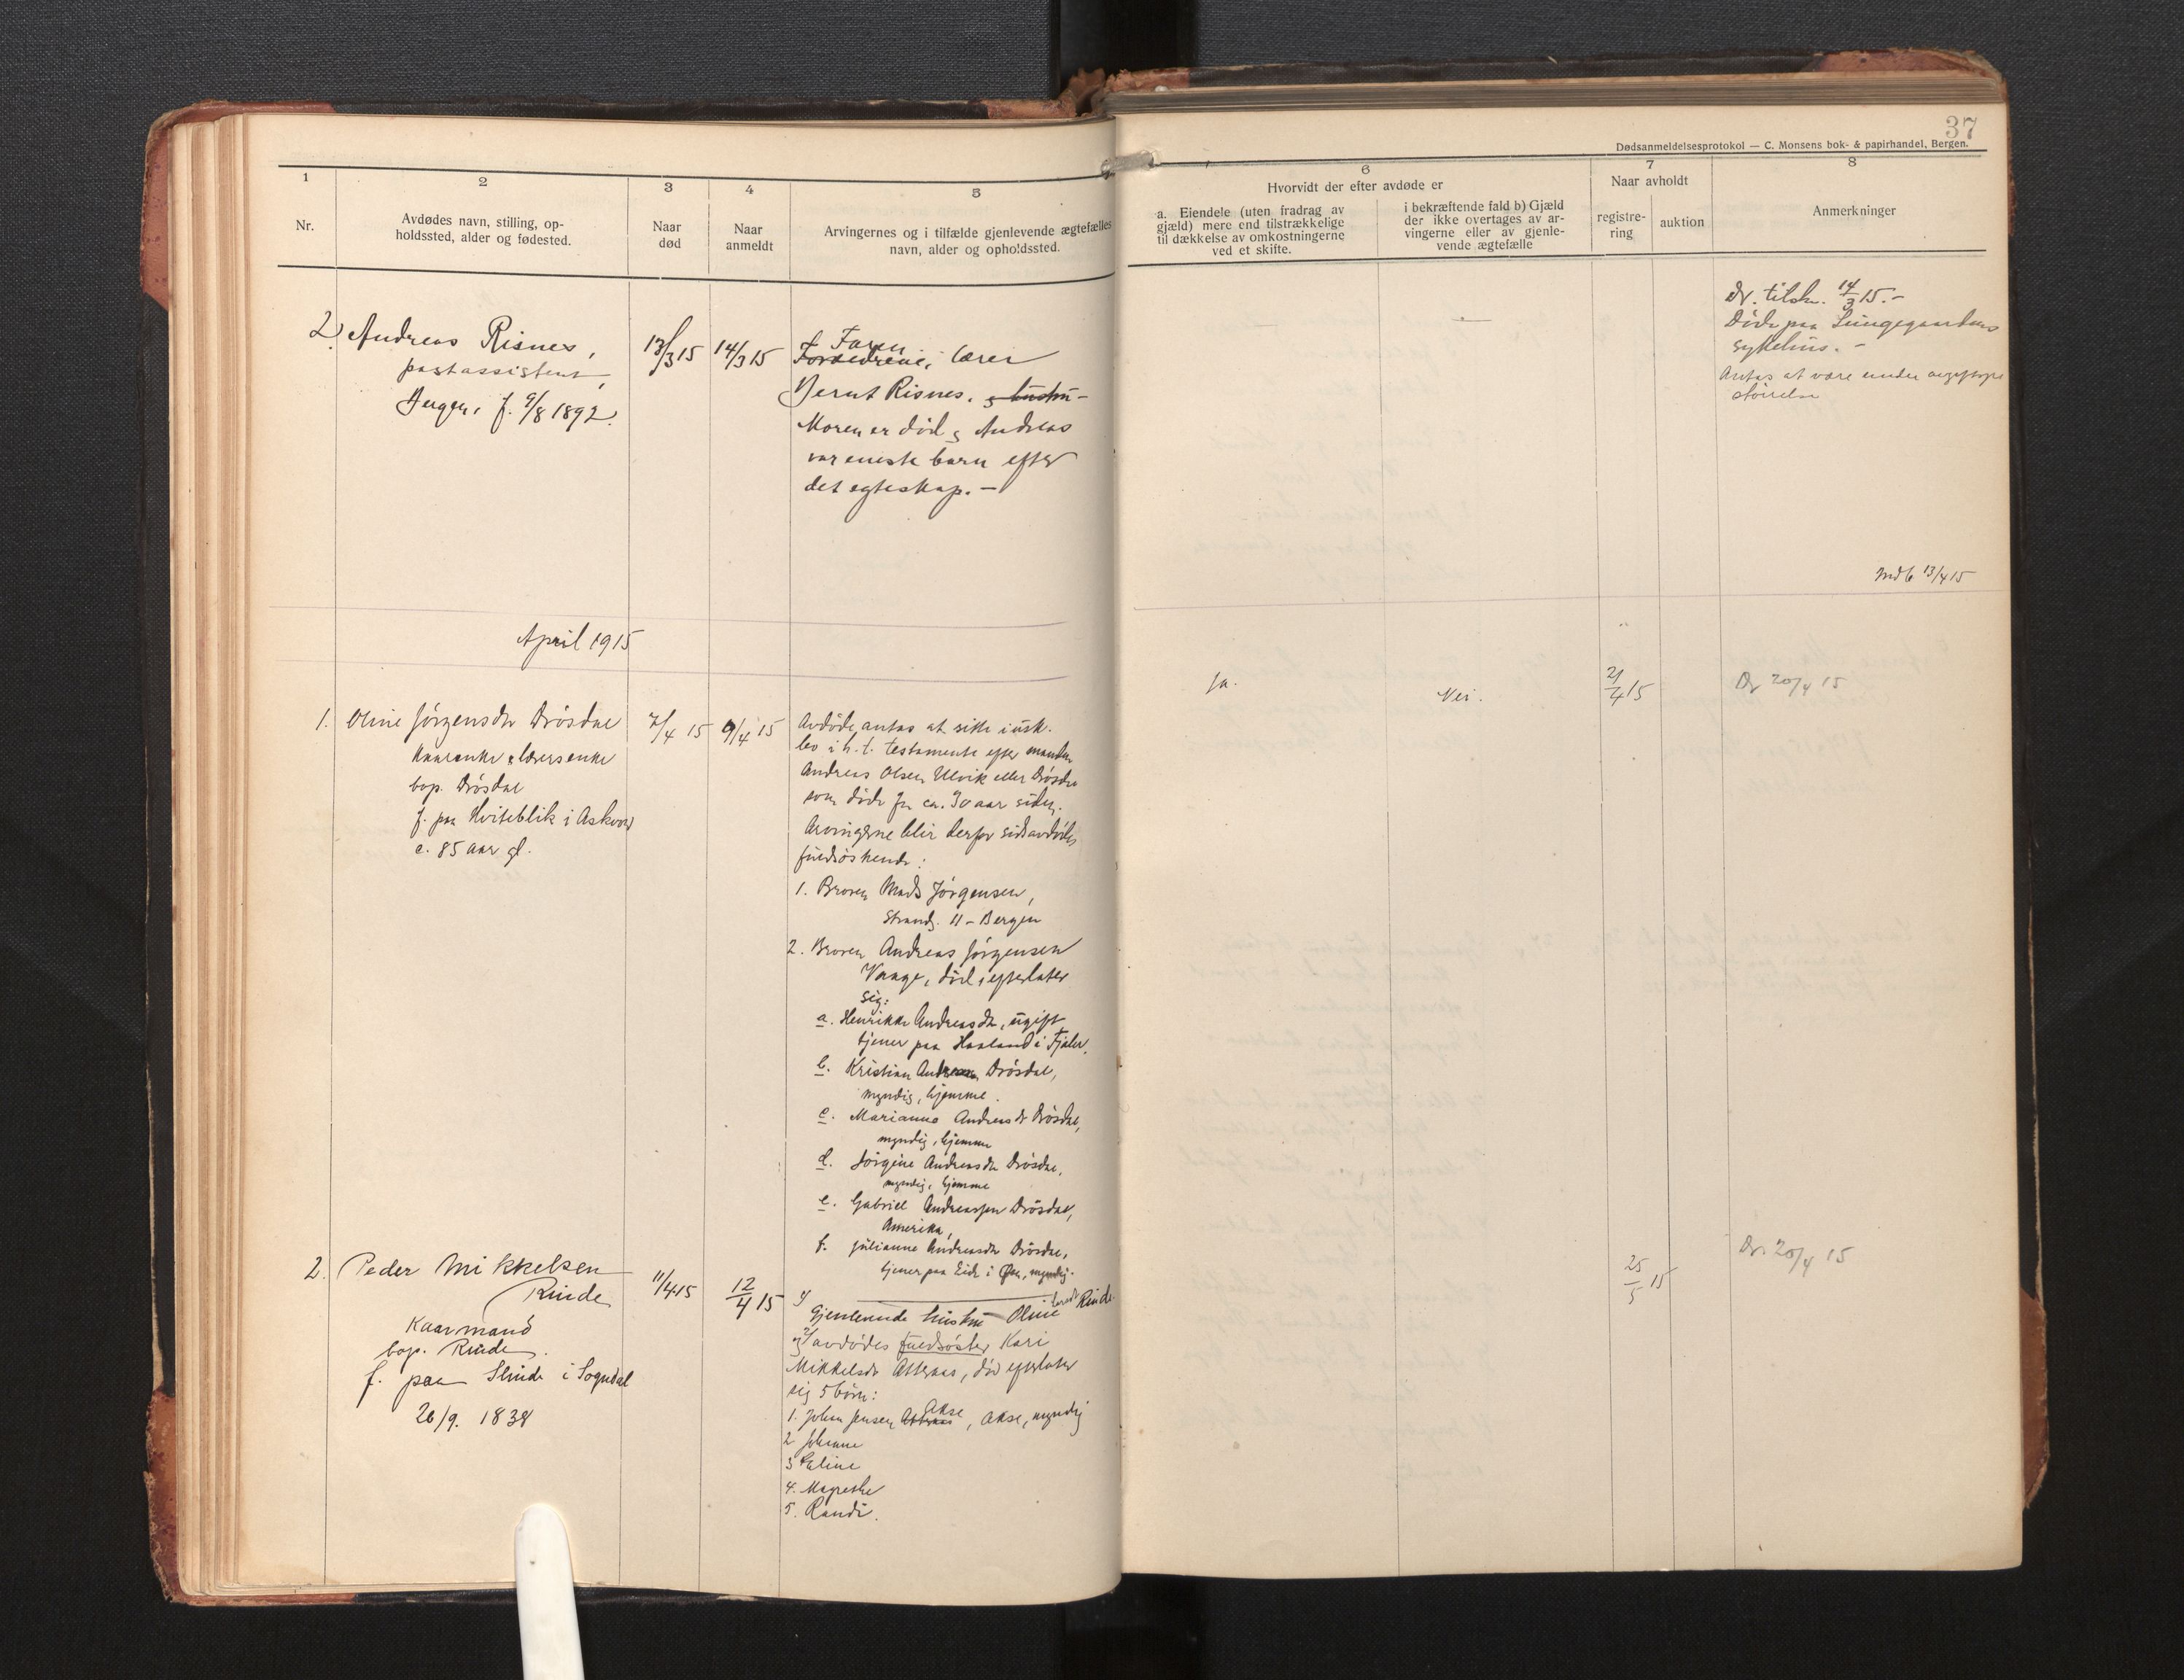 37
Dødsanmeldelsesprotokol — C. Monsens bok- & papirhandel, Bergen.
1
2
3
4
5
6
7
8
Nr.
Avdødes navn, stilling, op-
holdssted, alder og fødested.
Naar
død
Naar
anmeldt
Arvingernes og i tilfælde gjenlevende ægtefælles
navn, alder og opholdssted.
Hvorvidt der efter avdøde er
a. Eiendele (uten fradrag av
gjæld) mere end tilstrækkelige
til dækkelse av omkostningerne
ved et skifte.
i bekræftende fald b) Gjæld
der ikke overtages av ar-
vingerne eller av gjenle-
vende ægtefælle
Naar avholdt
registre-
ring
auktion
Anmerkninger
2) Andreas Risnes,
postassistent,
Bergen, f. 9/8 1892.
13/3 15
14/3 15
Faren
Forældrene, lærer
Bernt Risnes. & hustru -
Moren er død & Andreas
var eneste barn efter
det egteskap. -
—
—
Dr. tilskr. 14/3 15.-
Døde paa Lungegaardens
sykehus. -
Antas at være under
størrelse
13/4 15
April 1915
1. Oline Jörgensdr Drösdal
Kaarenke & lærersenke
bop. Drösdal
f. paa Kviteblik i Askvoll
c. 85 aar gl.
7/4 15
9/4 15
Avdöde antas at sitte i usk.
bo i h. t. testamente efter manden
Andreas Olsen Ulvik eller Drösdal
som döde for ca. 30 aar siden.
Arvingerne blir derfor sidstavdödes
fuldsöskende:
1. Broren Mads Jörgensen,
Strandg. 11 - Bergen
2. Broren Andreas Jörgensen
Vaage, död, efterlater
sig:
a. Henrikke Andreasdr, ugift
tjener paa Haaland i Fjaler.
b. Kristian Andreassen Drösdal,
myndig, hjemme.
c. Marianne Andreasdr Drösdal,
myndig, hjemme
d. Jörgine Andreasdr Drösdal,
myndig, hjemme
e. Gabriel Andreassen Drösdal,
Amerika,
f. Julianne Andreasdr Drösdal,
tjener paa Eide i myndig.
Ja.
Nei.
21/4 15
Dr 20/4 15
2. Peder Mikkelsen
Rinde
Kaarmand
bop. Rinde.
f. paa Slinde i Sogndal
26/9. 1838
11/4 15
12/4 15
1/ Gjenlevende hustru Oline Rinde
2/ avdödes fuldsöster Kari
Mikkelsdr Atteraas, död efterlater
sig 5 börn:
Akse
1. Johan Jensen Atteraas, Akse, myndig
2 Johanne
3
4. Magrethe
5. Randi.
25/5 15
Dr. 20/4 15